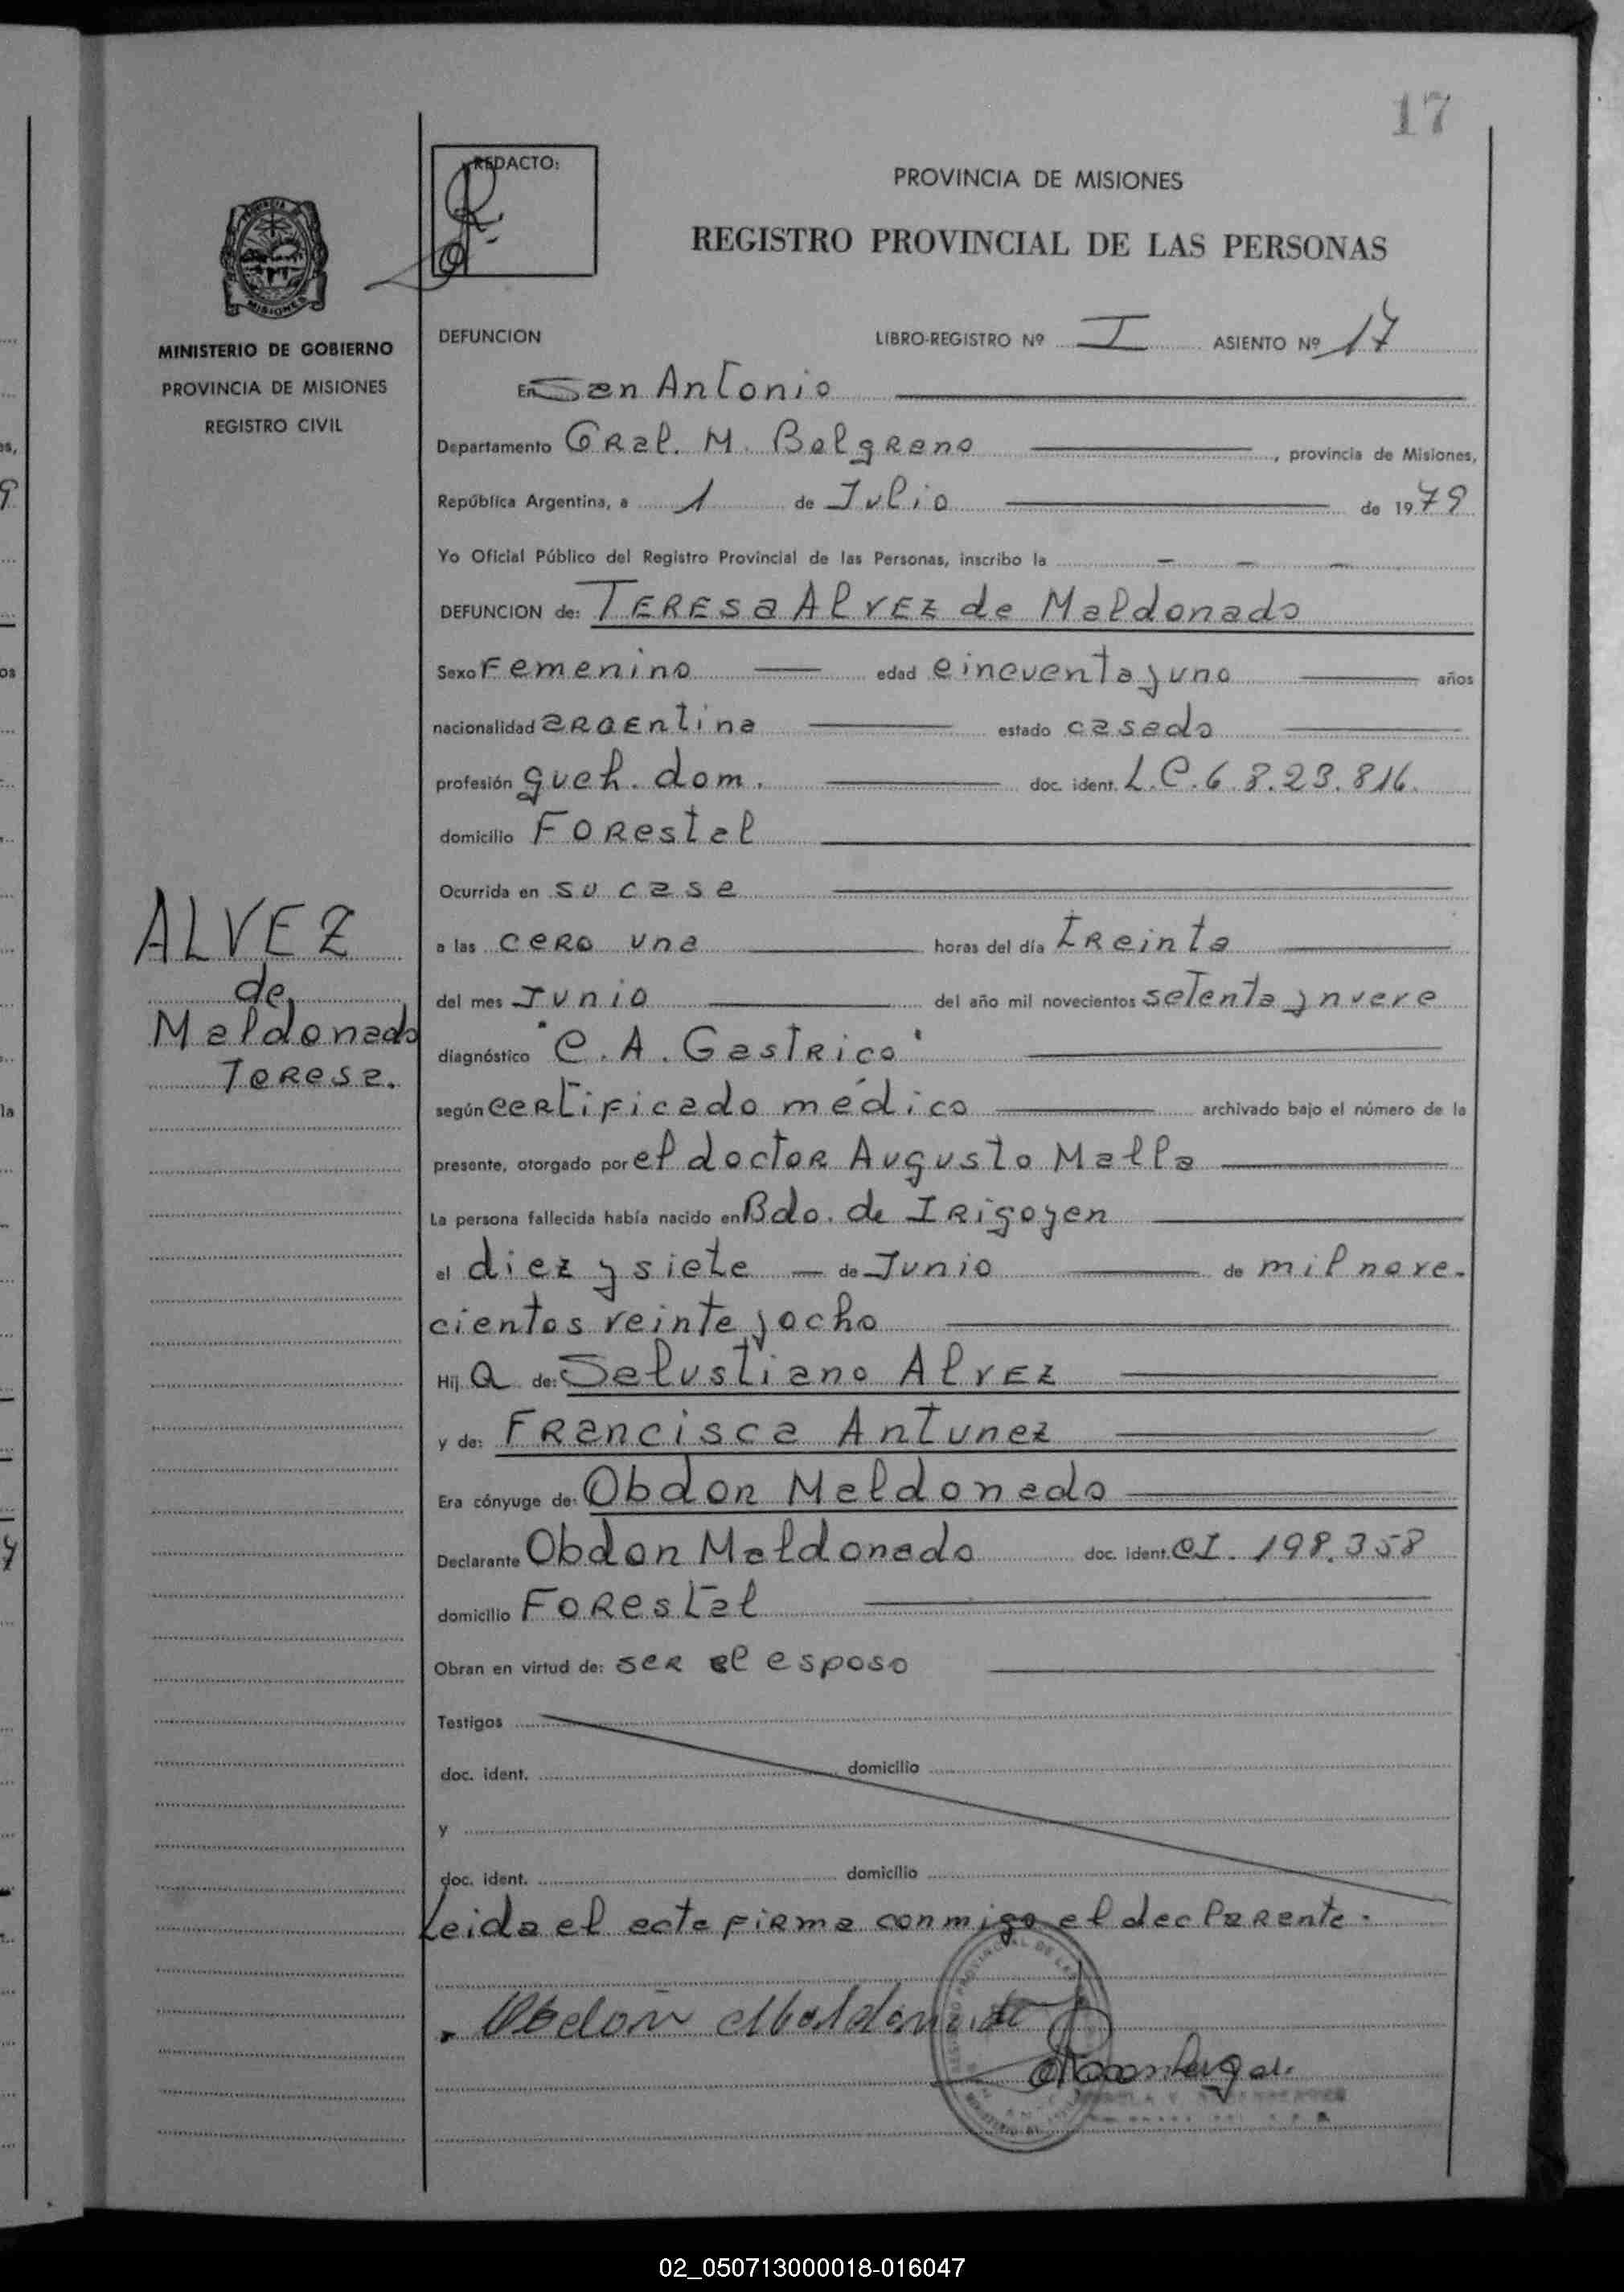 17
REDACTO:
PROVINCIA DE MISIONES
REGISTRO PROVINCIAL DE LAS PERSONAS
MINISTERIO DE GOBIERNO
PROVINCIA DE MISIONES
REGISTRO CIVIL
DEFUNCION LIBRO-REGISTRO Nº I ASIENTO Nº 17
En San Antonio
Departamento Gral. M. Belgrano, provincia de Misiones,
República Argentina, a 1 de Julio de 1979
Yo Oficial Público del Registro Provincial de las Personas, inscribo la - - -
DEFUNCION de: TERESa AlVEZ de Maldonado
Sexo Femenino edad cincuenta y uno años
nacionalidad argentina estado casada
profesión queh. dom. doc. ident. L.C. 6.823.816.
domicilio Forestal
Ocurrida en su casa
a las cero una horas del día treinta
del mes Junio del año mil novecientos setenta y nueve
diagnóstico "C. A. Gastrico"
según certificado médico archivado bajo el número de la
presente, otorgado por el doctor Augusto Malla
La persona fallecida había nacido en Bdo. de Irigoyen
el diez y siete de Junio de mil nove-
cientos veinte y ocho
Hij a de: Salustiano Alvez
y de: Francisca Antunez
Era cónyuge de: Obdon Maldonado
Declarante Obdon Maldonado doc. ident. CI. 198.358
domicilio Forestal
Obran en virtud de: ser el esposo
Testigos
doc. ident. domicilio
y
doc. ident. domicilio
Leida el acta firma conmigo el declarante.
Obdon Maldonado
ALVEZ
de
Maldonado
Teresa.
02_050713000018-016047